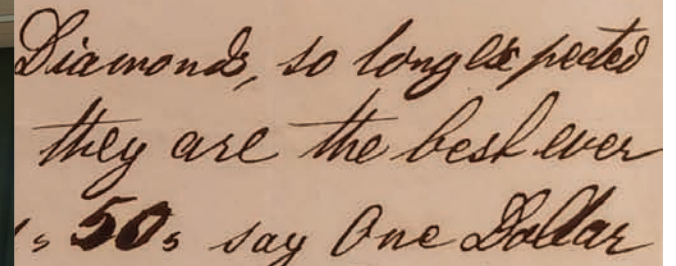 Diamonds, so long expected
they are the best ever
50s say One Dollar